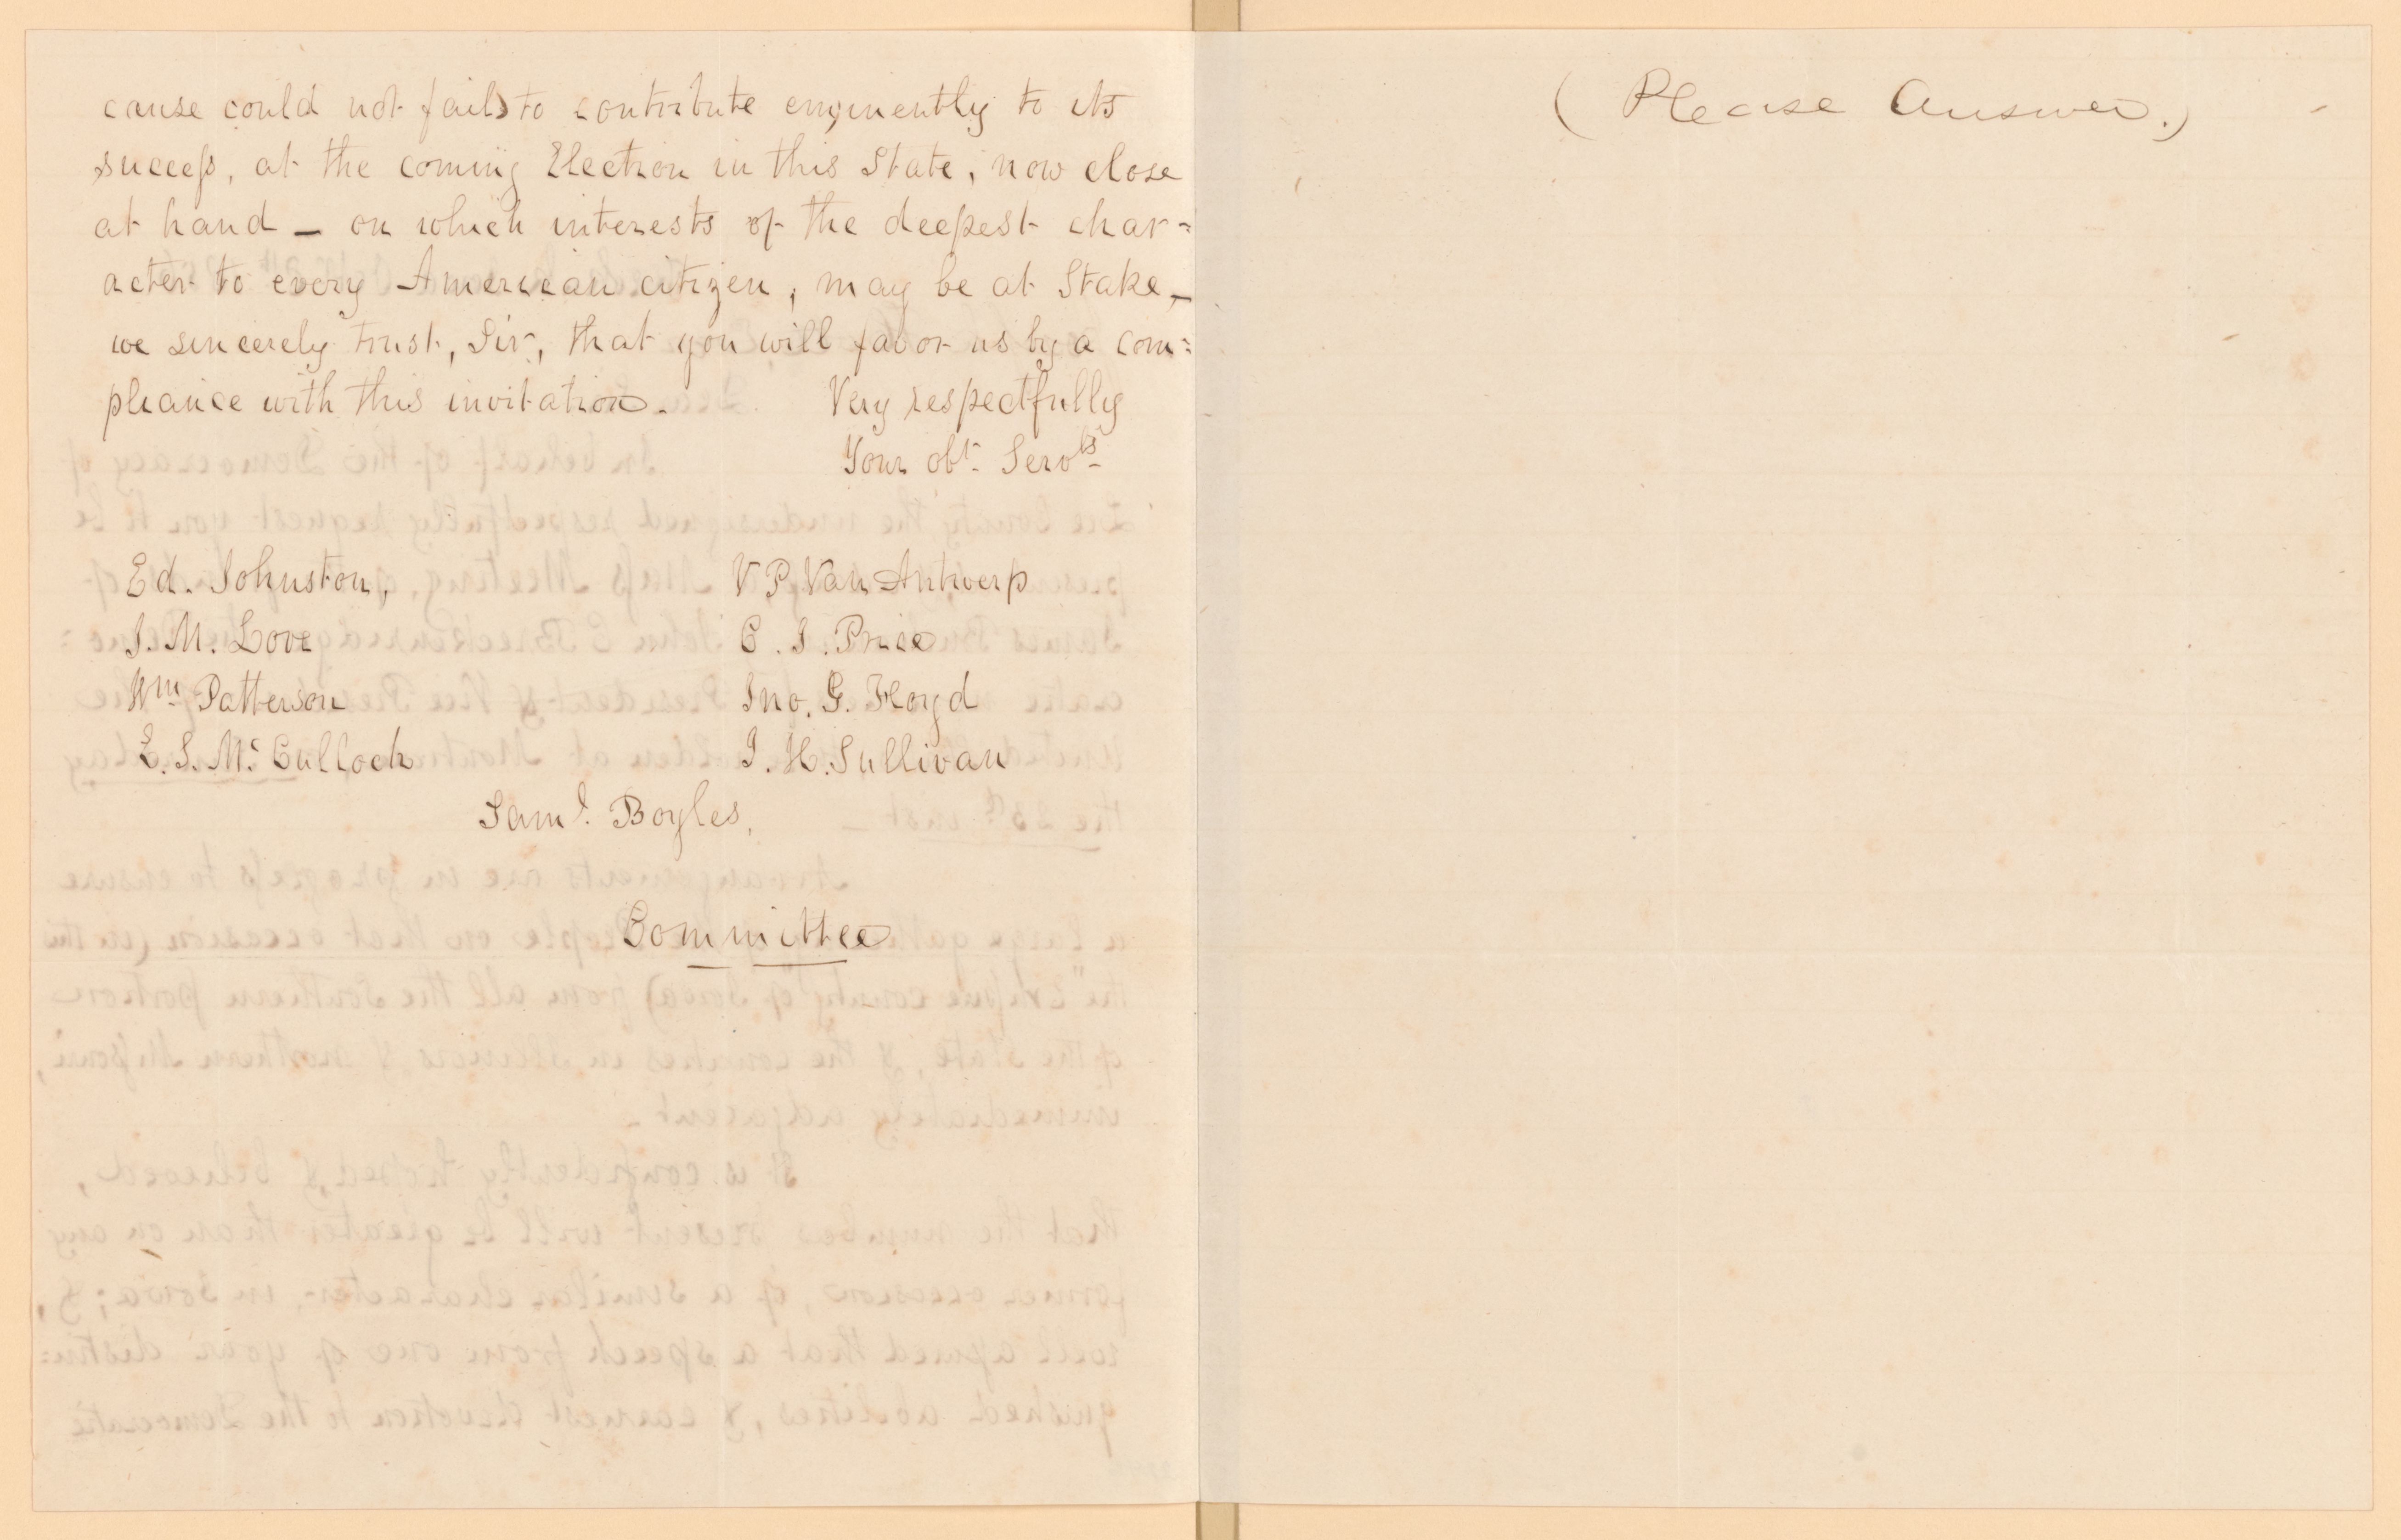 cause could not fail to contribute eminently to its
success, at the coming Election in this State, now close
at hand — on which interests of the deepest char=
acter to every American citizen, may be at Stake, —
we sincerely trust, Sir, that you will favor us by a com=
pliance with this invitation. Very respectfully
Your obt. Servts
Ed. Johnston, V P. Van Antwerp
J. M. Love C. J. Price
Wm Patterson Jno. G. Floyd
E. S. McCulloch J. H. Sullivan
Saml. Boyles,
Committee
(Please Answer.)